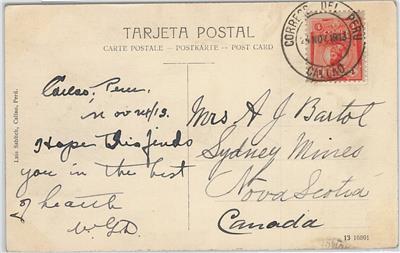 TARJETA POSTAL
CARTE POSTALE - POSTKARTE - POST CARD
CORREOS DEL PERU
24 NOV 1913
CALLAO
Luis Sablich, Callao, Perú.
Callao, Peru.
Nov 24/13.
Hope this finds
you in the best
of health
Mrs A J Bartol
Sydney Mines
Nova Scotia
Canada
13 16691